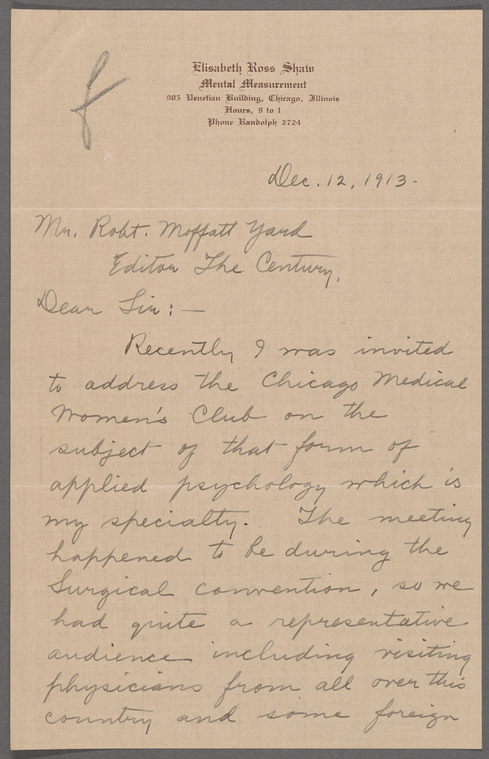 Elisabeth Ross Shaw
Mental Measurement
905 Venetian Building, Chicago, Illinois
Hours, 9 to 1
Phone Randolph 2724
Dec. 12, 1913.
Mr. Robt. Moffatt Yard
Editor The Century.
Dear Sir: —
Recently I was invited
to address the Chicago Medical
Women's Club on the
subject of that form of
applied psychology which is
my specialty. The meeting
happened to be during the
Surgical convention, so we
had quite a representative
audience including visiting
physicians from all over this
country and some foreign